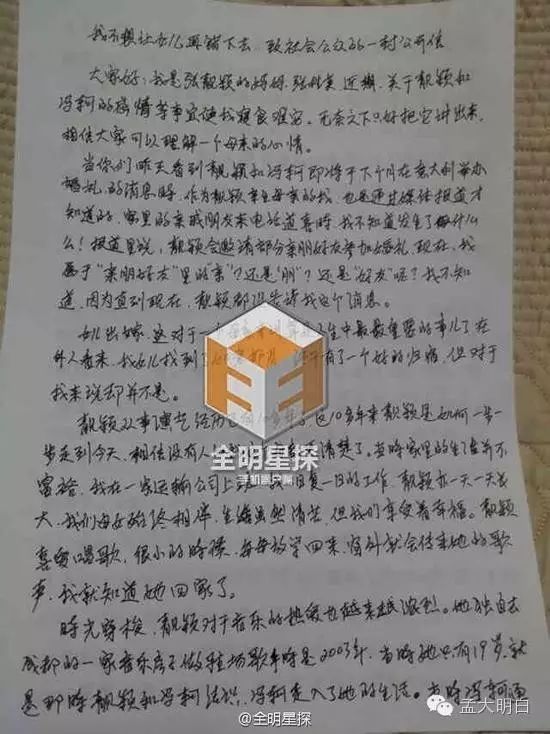 我不想让女儿再错下去 致社会公众的一封公开信
大家好，我是张靓颖的妈妈，张桂英 近期，关于靓颖和
冯轲的婚情等事宜使我寝食难安。无奈之下只好把它讲出来，
相信大家可以理解一个母亲的心情。
当你们昨天看到靓颖和冯轲即将于下个月在意大利举办
婚礼的消息时，作为靓颖亲生母亲的我，也是通过媒体报道才
知道的，家里的亲戚朋友来电话道喜时，我不知道发生了什么
么！报道里说，靓颖会邀请部分亲朋好友参加婚礼，现在，我
属于"亲朋好友"里的"亲"？还是"朋"？还是"好友"呢？我不知
道，因为直到现在，靓颖都没告诉我这个消息。
女儿出嫁，这对于一个母亲来说 生中最最重要的事儿了在
外人看来，我女儿找到了 有了一个好的归宿，但对于
我来说却并不是。
靓颖从事演艺经历已有10多年 这10多年来靓颖是如何一步一
步走到今天，相信没有人 清楚了。当时家里的生活并不
富裕，我在一家运输公司上 日复一日的工作，靓颖亦一天一天长
大，我们母女始终相伴，生活虽然清苦，但我们享受着幸福。靓颖
喜爱唱歌，很小的时候，每每放学回来，窗外就会传来她的歌
声，我就知道她回家了。
时光穿梭，靓颖对于音乐的热爱也越来越浓烈。她独自去
成都的一家音乐房子做驻场歌手时是2003年，当时她只有19岁，就
是那时靓颖和冯轲结识，冯轲走入了她的生活。当时冯轲通
全明星探
@全明星探
孟大明白